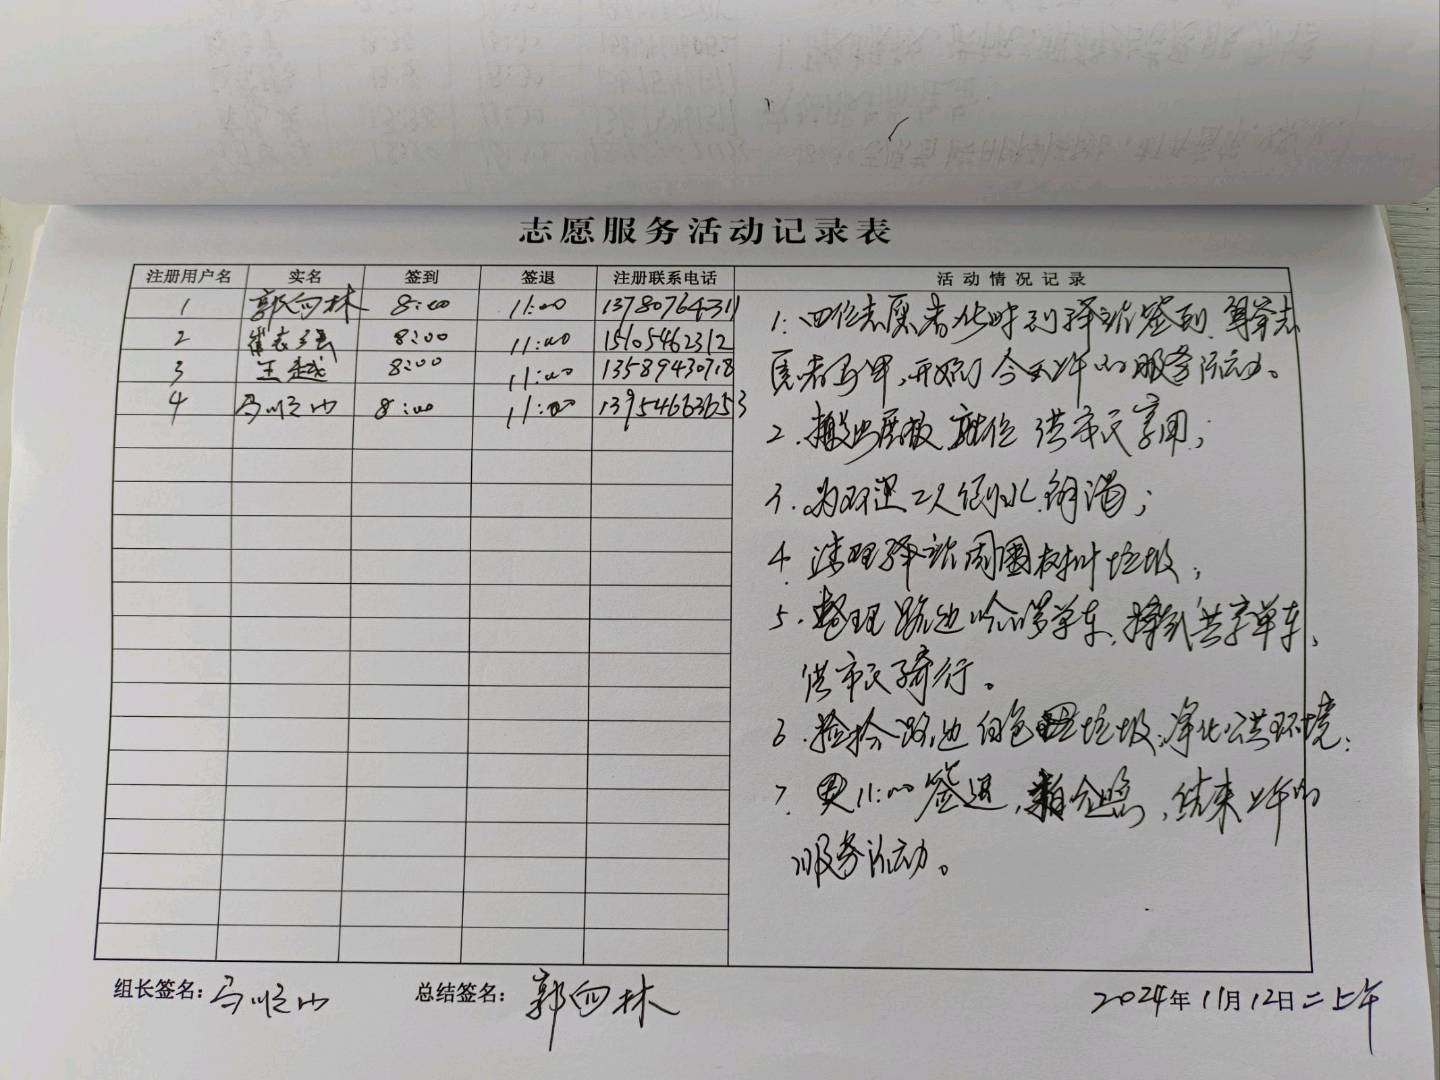 志愿服务活动记录表
注册用户名 实名 签到 签退 注册联系电话 活动情况记录
1 郭向林 8:00 11:00 13780764311
2 8:00 11:00 15105462312
3 王越 8:00 11:00 13589430718
4 马顺山 8:00 11:00 13954663653
1. 四位志愿者准时到驿站签到,穿好志
愿者马甲,开始了今天上午的服务活动。
2. 搬出展板就位供市民享用;
3. 为环卫工人倒水解渴;
4. 清理驿站周围树叶垃圾;
5. 整理路边哈啰单车、共享单车,
供市民骑行。
6. 捡拾路边白色垃圾,净化公共环境;
7. 11:00签退,拍合照,结束上午的
服务活动。
组长签名:马顺山 总结签名:郭向林 2024年11月12日二上午